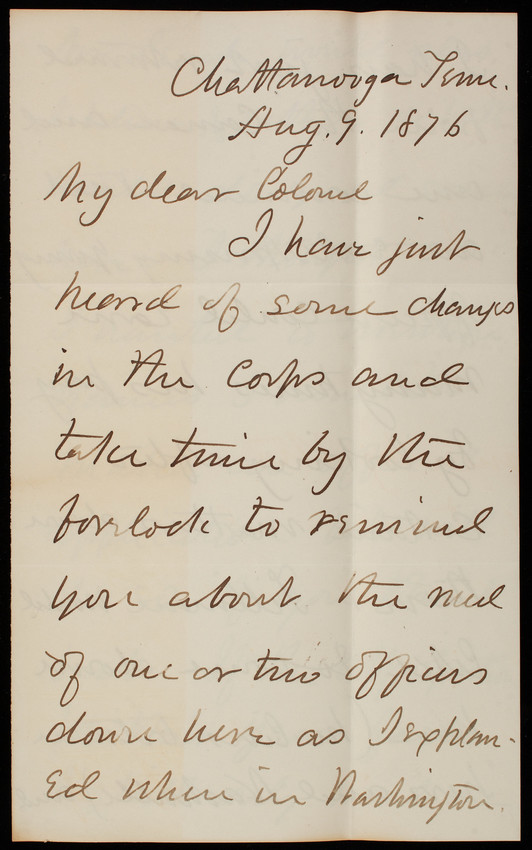 Chattanooga Tenn.
Aug. 9. 1876
My dear Colonel
I have just
heard of some changes
in the Corps and
take time by the
forelock to remind
you about the need
of one or two officers
down here as I explain-
ed when in Washington.